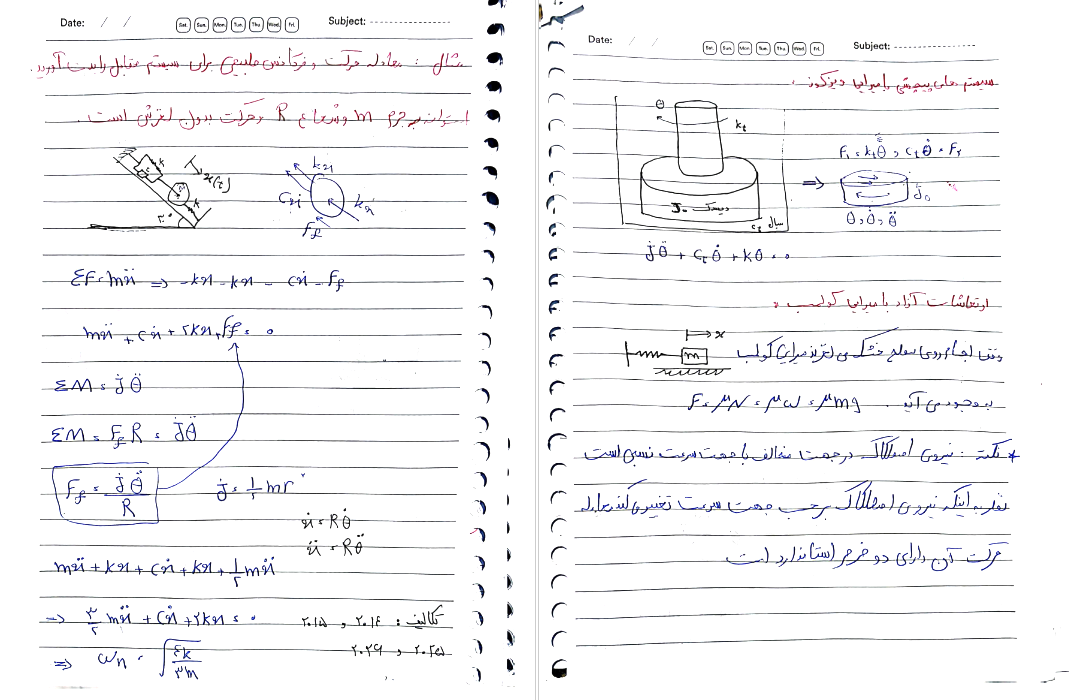 Date: / / Sat. Sun. Mon. Tue. Thu Wed. Fri. Subject:
مثال : معادله حرکت و فرکانس طبیعی برای سیستم مقابل را بدست آورید.
استوانه به جرم m و شعاع R و حرکت بدون لغزش است.
k c m k x(t) ۳۰°
kx cẋ kx F_f
ΣF = mẍ ⇒ -kx - kx - cẋ - F_f
mẍ + cẋ + ۲kx + F_f = ۰
ΣM = J θ̈
ΣM = F_f R = Jθ̈
F_f = Jθ̈ / R J = ۱/۲ mr²
ẋ = Rθ̇
ẍ = Rθ̈
mẍ + kx + cẋ + kx + ۱/۲ mẍ
⇒ ۳/۲ mẍ + cẋ + ۲kx = ۰
⇒ ωn = √(۴k/۳m)
تکالیف : ۲.۱۴ و ۲.۱۵
۲.۲۵ و ۲.۲۹
Date: / / Sat. Sun. Mon. Tue. Thu Wed. Fri. Subject:
سیستم های پیچشی با میرایی ویسکوز.
θ k_t
دیسک J₀
سیال c_t
⇒ F₁ = k_tθ , c_tθ̇ = F₂
J₀
θ, θ̇, θ̈
Jθ̈ + c_tθ̇ + kθ = ۰
ارتعاشات آزاد با میرایی کولمب :
m x
وقتی اجسام روی سطح خشک می لغزند میرایی کولمب
به وجود می آید . F = μN = μω = μmg
* نکته : نیروی اصطکاک در جهت مخالف با جهت سرعت نسبی است
نظر به اینکه نیروی اصطکاک برحسب جهت سرعت تغییر می کند معادله
حرکت آن دارای دو فرم استاندارد است